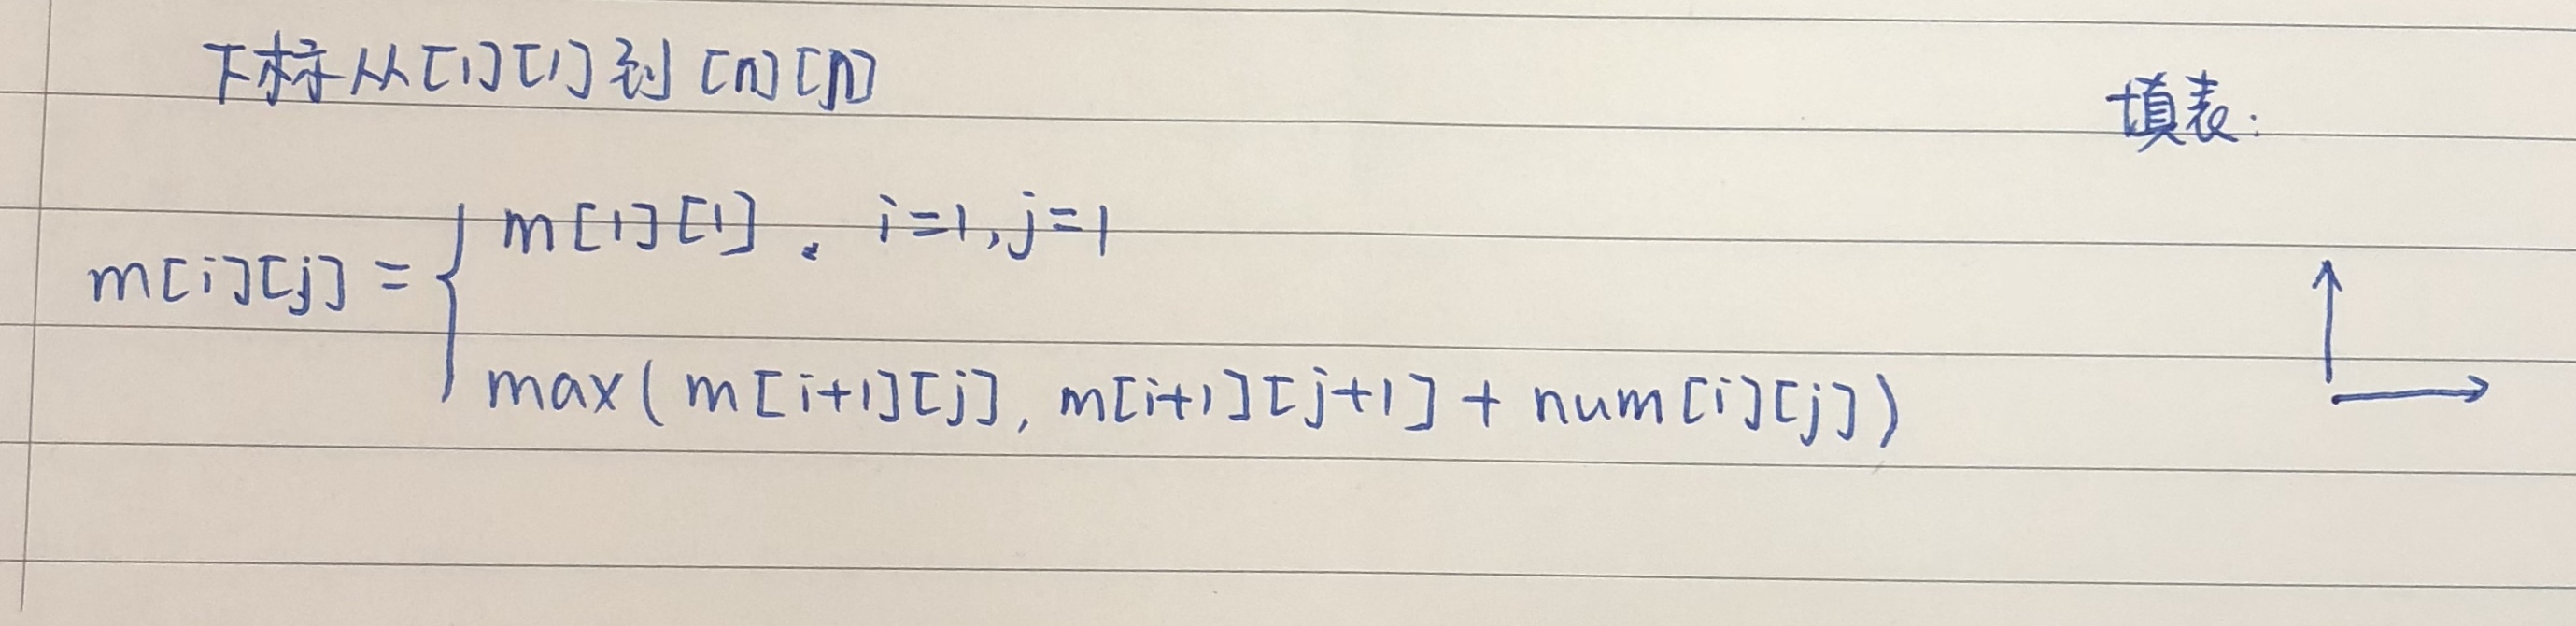 下标从[1][1]到[n][n]
填表:
m[i][j] = { m[1][1]. i=1,j=1
max(m[i+1][j], m[i+1][j+1] + num[i][j])